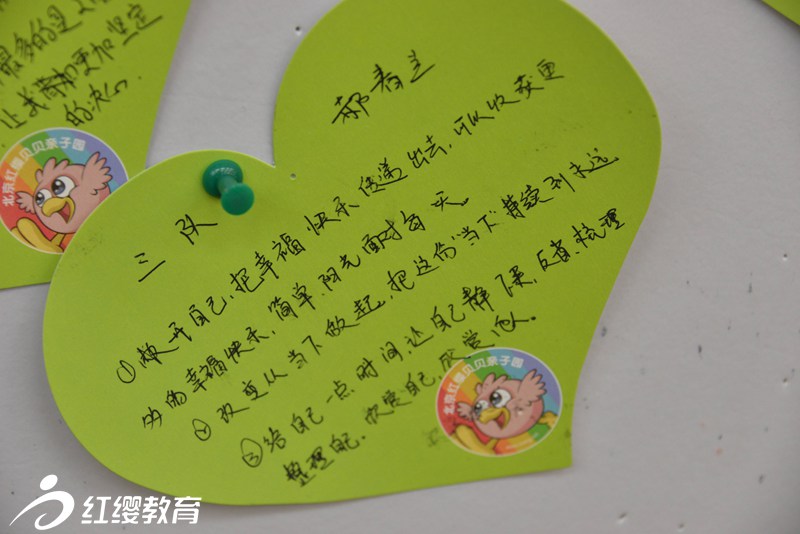 最多的是
让我
更加坚定
的决心.
北京红缨贝贝亲子园
三队
郝春兰
①敞开自己,把幸福快乐传递出去,可以收获更
多的幸福快乐,简单、阳光面对每一天。
②改变从当下做起,把这份“当下”持续到永远
③给自己一点时间,让自己静下来,反省、梳理
整理自己.欣赏自己,欣赏他人。
北京红缨贝贝亲子园
红缨教育